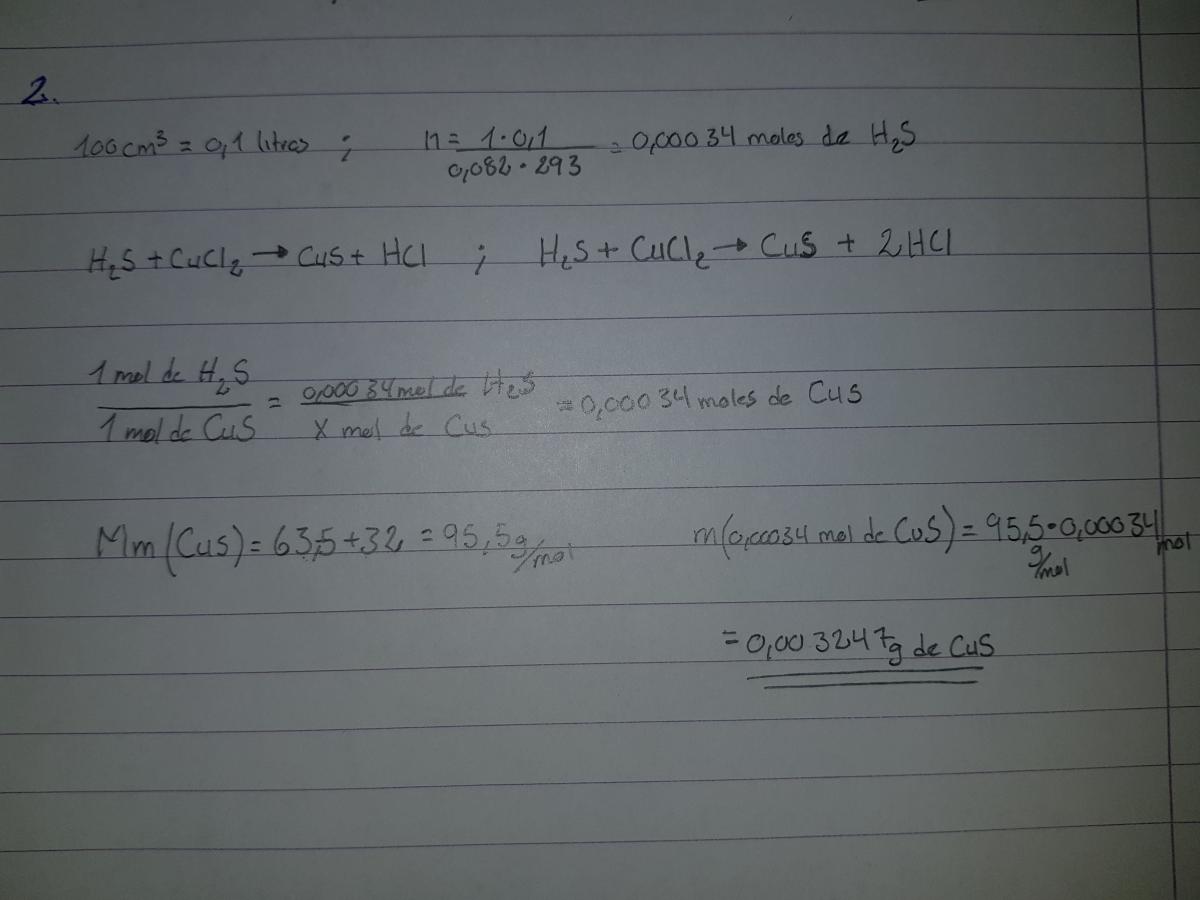 2.
100cm³ = 0,1 litros ; n = 1·0,1 / 0,082·293 = 0,00034 moles de H₂S
H₂S + CuCl₂ → CuS + HCl ; H₂S + CuCl₂ → CuS + 2HCl
1 mol de H₂S / 1 mol de CuS = 0,00034 mol de H₂S / x mol de CuS = 0,00034 moles de CuS
Mm (CuS) = 63,5 + 32 = 95,5 g/mol m(0,00034 mol de CuS) = 95,5 g/mol · 0,00034 mol
= 0,003247g de CuS